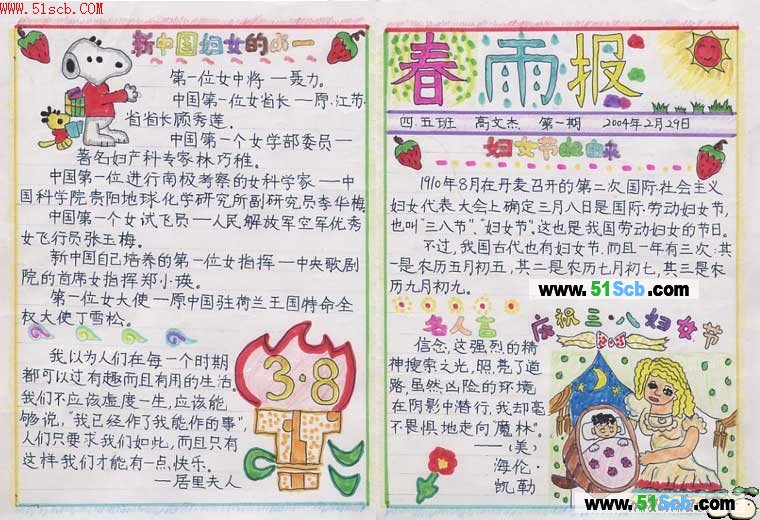 www.51scb.com
新中国妇女的第一
第一位女中将—聂力。
中国第一位女省长—原·江苏
省省长顾秀莲。
中国第一个女学部委员—
著名妇产科专家林巧稚。
中国第一位进行南极考察的女科学家—中
国科学院贵阳地球化学研究所副研究员李华梅
中国第一个女试飞员—人民解放军空军优秀
女飞行员张玉梅。
新中国自己培养的第一位女指挥—中央歌剧
院的首席女指挥郑小瑛。
第一位女大使—原中国驻荷兰王国特命全
权大使丁雪松。
我以为人们在每一个时期
都可以过有趣而且有用的生活。
我们不应该虚度一生,应该能
够说,“我已经作了我能作的事”,
人们只要求我们如此,而且只有
这样我们才能有一点快乐。
—居里夫人
3·8
春雨报
四.五班 高文杰 第一期 2004年2月29日
妇女节的由来
1910年8月在丹麦召开的第二次国际社会主义
妇女代表大会上确定三月八日是国际劳动妇女节,
也叫“三八节”、“妇女节”。这也是我国劳动妇女的节日。
不过,我国古代也有妇女节,而且一年有三次:其
一是农历五月初五,其二是农历七月初七,其三是农
历九月初九。
www.51Scb.com
名人言
信念,这强烈的精
神搜索之光,照亮了道
路,虽然凶险的环境
在阴影中潜行,我却毫
不畏惧地走向“魔林”。
——(美)
海伦·
凯勒
庆祝三·八妇女节
www.51Scb.com